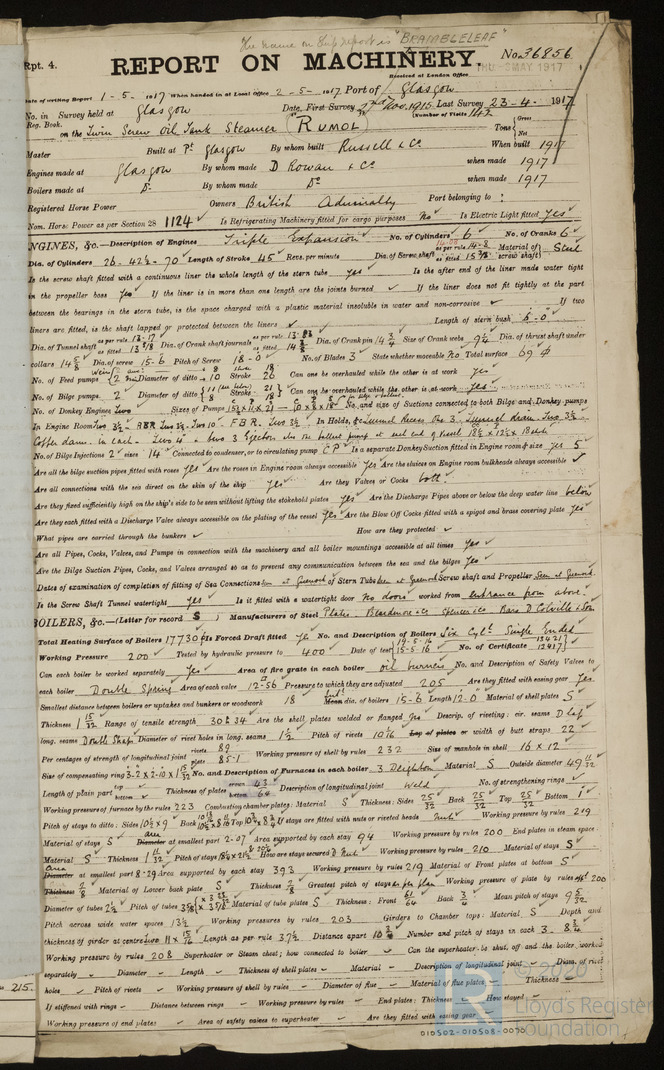 The name on Ship report is "BRAMBLELEAF"
Rpt. 4. REPORT ON MACHINERY. No. 36856
Received at London Office THU. MAY 1917
Date of writing Report 1-5-1917 When handed in at Local Office 2-5-1917 Port of Glasgow
No. in Survey held at Glasgow Date, First Survey 2nd Nov. 1915 Last Survey 23-4-1917
Reg. Book. (Number of Visits 143)
on the Twin Screw Oil Tank Steamer (RUMOL) Tons Gross Net
Master Built at Pt Glasgow By whom built Russell & Co When built 1917
Engines made at Glasgow By whom made D Rowan & Co when made 1917
Boilers made at Do By whom made Do when made 1917
Registered Horse Power Owners British Admiralty Port belonging to
Nom. Horse Power as per Section 28 1124 Is Refrigerating Machinery fitted for cargo purposes No Is Electric Light fitted Yes
ENGINES, &c.—Description of Engines Triple Expansion No. of Cylinders 6 No. of Cranks 6
Dia. of Cylinders 26-42½-70 Length of Stroke 45" Revs. per minute Dia. of Screw shaft as per rule 14.8 as fitted 15 3/8 Material of screw shaft Steel
Is the screw shaft fitted with a continuous liner the whole length of the stern tube yes Is the after end of the liner made water tight
in the propeller boss yes If the liner is in more than one length are the joints burned If the liner does not fit tightly at the part
between the bearings in the stern tube, is the space charged with a plastic material insoluble in water and non-corrosive If two
liners are fitted, is the shaft lapped or protected between the liners Length of stern bush 6-0
Dia. of Tunnel shaft as per rule 13.17 as fitted 13 7/8 Dia. of Crank shaft journals as per rule 13.83 as fitted 14 3/8 Dia. of Crank pin 14 3/4 Size of Crank webs 9¼ Dia. of thrust shaft under
collars 14 5/8 Dia. of screw 15-6 Pitch of Screw 18-0 No. of Blades 3 State whether moveable No Total surface 69
No. of Feed pumps 2 Diameter of ditto 10 Stroke 26 Can one be overhauled while the other is at work yes
No. of Bilge pumps 2 Diameter of ditto Stroke Can one be overhauled while the other is at work yes
No. of Donkey Engines Two Sizes of Pumps No. and size of Suctions connected to both Bilge and Donkey pumps
In Engine Room In Holds, &c. Tunnel Recess One 3" Tunnel Drain Two 3½
Coffer dam in each Two 4"
No. of Bilge Injections 2 sizes 14" Connected to condenser, or to circulating pump C P Is a separate Donkey Suction fitted in Engine room & size yes 5
Are all the bilge suction pipes fitted with roses Yes Are the roses in Engine room always accessible Yes Are the sluices on Engine room bulkheads always accessible
Are all connections with the sea direct on the skin of the ship yes Are they Valves or Cocks both
Are they fixed sufficiently high on the ship's side to be seen without lifting the stokehold plates yes Are the Discharge Pipes above or below the deep water line below
Are they each fitted with a Discharge Valve always accessible on the plating of the vessel Yes Are the Blow Off Cocks fitted with a spigot and brass covering plate yes
What pipes are carried through the bunkers How are they protected
Are all Pipes, Cocks, Valves, and Pumps in connection with the machinery and all boiler mountings accessible at all times Yes
Are the Bilge Suction Pipes, Cocks, and Valves arranged so as to prevent any communication between the sea and the bilges Yes
Dates of examination of completion of fitting of Sea Connections Seen at Greenock of Stern Tube Seen at Greenock Screw shaft and Propeller Seen at Greenock
Is the Screw Shaft Tunnel watertight yes Is it fitted with a watertight door No door worked from entrance from above
BOILERS, &c.—(Letter for record S) Manufacturers of Steel Plates Beardmore & Co Spencer & Co Bars D Colville & Son
Total Heating Surface of Boilers 17730 Is Forced Draft fitted Yes No. and Description of Boilers Six Cyl. Single Ended
Working Pressure 200 Tested by hydraulic pressure to 400 Date of test 14-5-16 15-5-16 No. of Certificate 13421 13417
Can each boiler be worked separately Yes Area of fire grate in each boiler oil burners No. and Description of Safety Valves to
each boiler Double Spring Area of each valve 12.56 Pressure to which they are adjusted 205 Are they fitted with easing gear Yes
Smallest distance between boilers or uptakes and bunkers or woodwork 18 Mean dia. of boilers 15-6 Length 12-0 Material of shell plates S
Thickness 1 15/32 Range of tensile strength 30 & 34 Are the shell plates welded or flanged Yes Descrip. of riveting: cir. seams D lap
long. seams Double Straps Diameter of rivet holes in long. seams 1½ Pitch of rivets 10 1/16 Lap of plates or width of butt straps 22
Per centages of strength of longitudinal joint rivets 89 plate 85.1 Working pressure of shell by rules 232 Size of manhole in shell 16 x 12
Size of compensating ring 3-2 x 2-10 x 1 15/32 No. and Description of Furnaces in each boiler 3 Deighton Material S Outside diameter 49 11/32
Length of plain part top bottom Thickness of plates crown 43 bottom 64 Description of longitudinal joint Weld No. of strengthening rings
Working pressure of furnace by the rules 223 Combustion chamber plates: Material S Thickness: Sides 25/32 Back 25/32 Top 25/32 Bottom 1
Pitch of stays to ditto: Sides 10½ x 9 Back Top If stays are fitted with nuts or riveted heads Nuts Working pressure by rules 219
Material of stays S area Diameter at smallest part 2.07 Area supported by each stay 94 Working pressure by rules 200 End plates in steam space:
Material S Thickness 1 1/32 Pitch of stays How are stays secured D Nut Working pressure by rules 210 Material of stays S
Area Diameter at smallest part 8.29 Area supported by each stay 393 Working pressure by rules 219 Material of Front plates at bottom S
Thickness 7/8 Material of Lower back plate S Thickness 7/8 Greatest pitch of stays as per plan Working pressure of plate by rules 200
Diameter of tubes 2½ Pitch of tubes Material of tube plates S Thickness: Front 61/64 Back 3/4 Mean pitch of stays 9 5/32
Pitch across wide water spaces 13½ Working pressures by rules 203 Girders to Chamber tops: Material S Depth and
thickness of girder at centre Length as per rule 37½ Distance apart 10 Number and pitch of stays in each 3. 8¾
Working pressure by rules 208 Superheater or Steam chest; how connected to boiler Can the superheater be shut off and the boiler worked
separately Diameter Length Thickness of shell plates Material Description of longitudinal joint Diam. of rivet
holes Pitch of rivets Working pressure of shell by rules Diameter of flue Material of flue plates Thickness
If stiffened with rings Distance between rings Working pressure by rules End plates: Thickness How stayed
Working pressure of end plates Area of safety valves to superheater Are they fitted with easing gear
215.
© 2020
Lloyd's Register
Foundation
010502-010508-0070